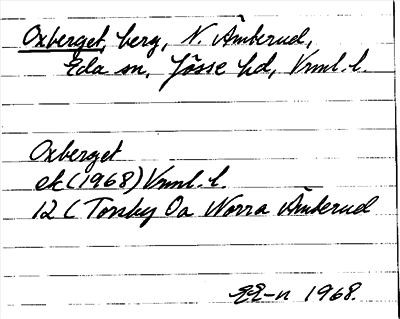 Oxberget, berg, N. Åmberud,
Eda sn, Jösse hd, Vrml. l.
Oxberget
ek (1968) Vrml. l.
12 C Torsby 0a Norra Åmberud
EE-n 1968.